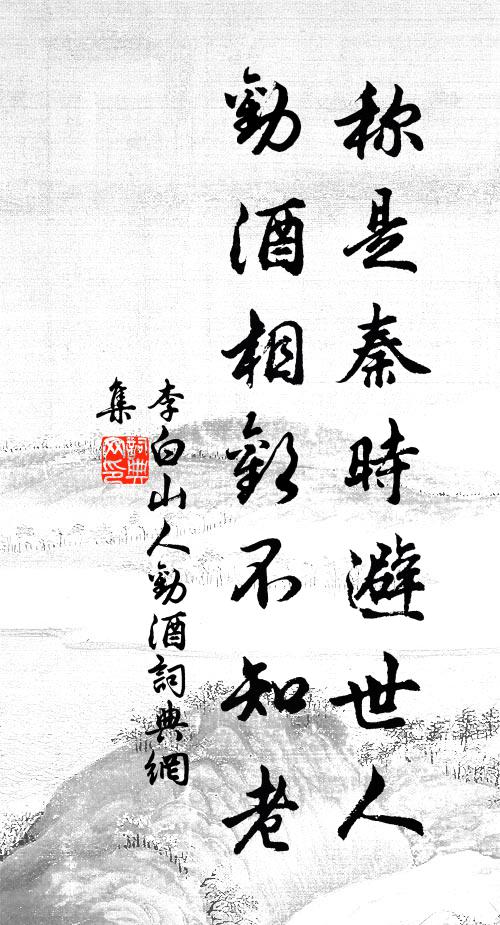 称是秦時避世人
勸酒相歡不知老
李白山人勸酒詞典網
集
詞典网印